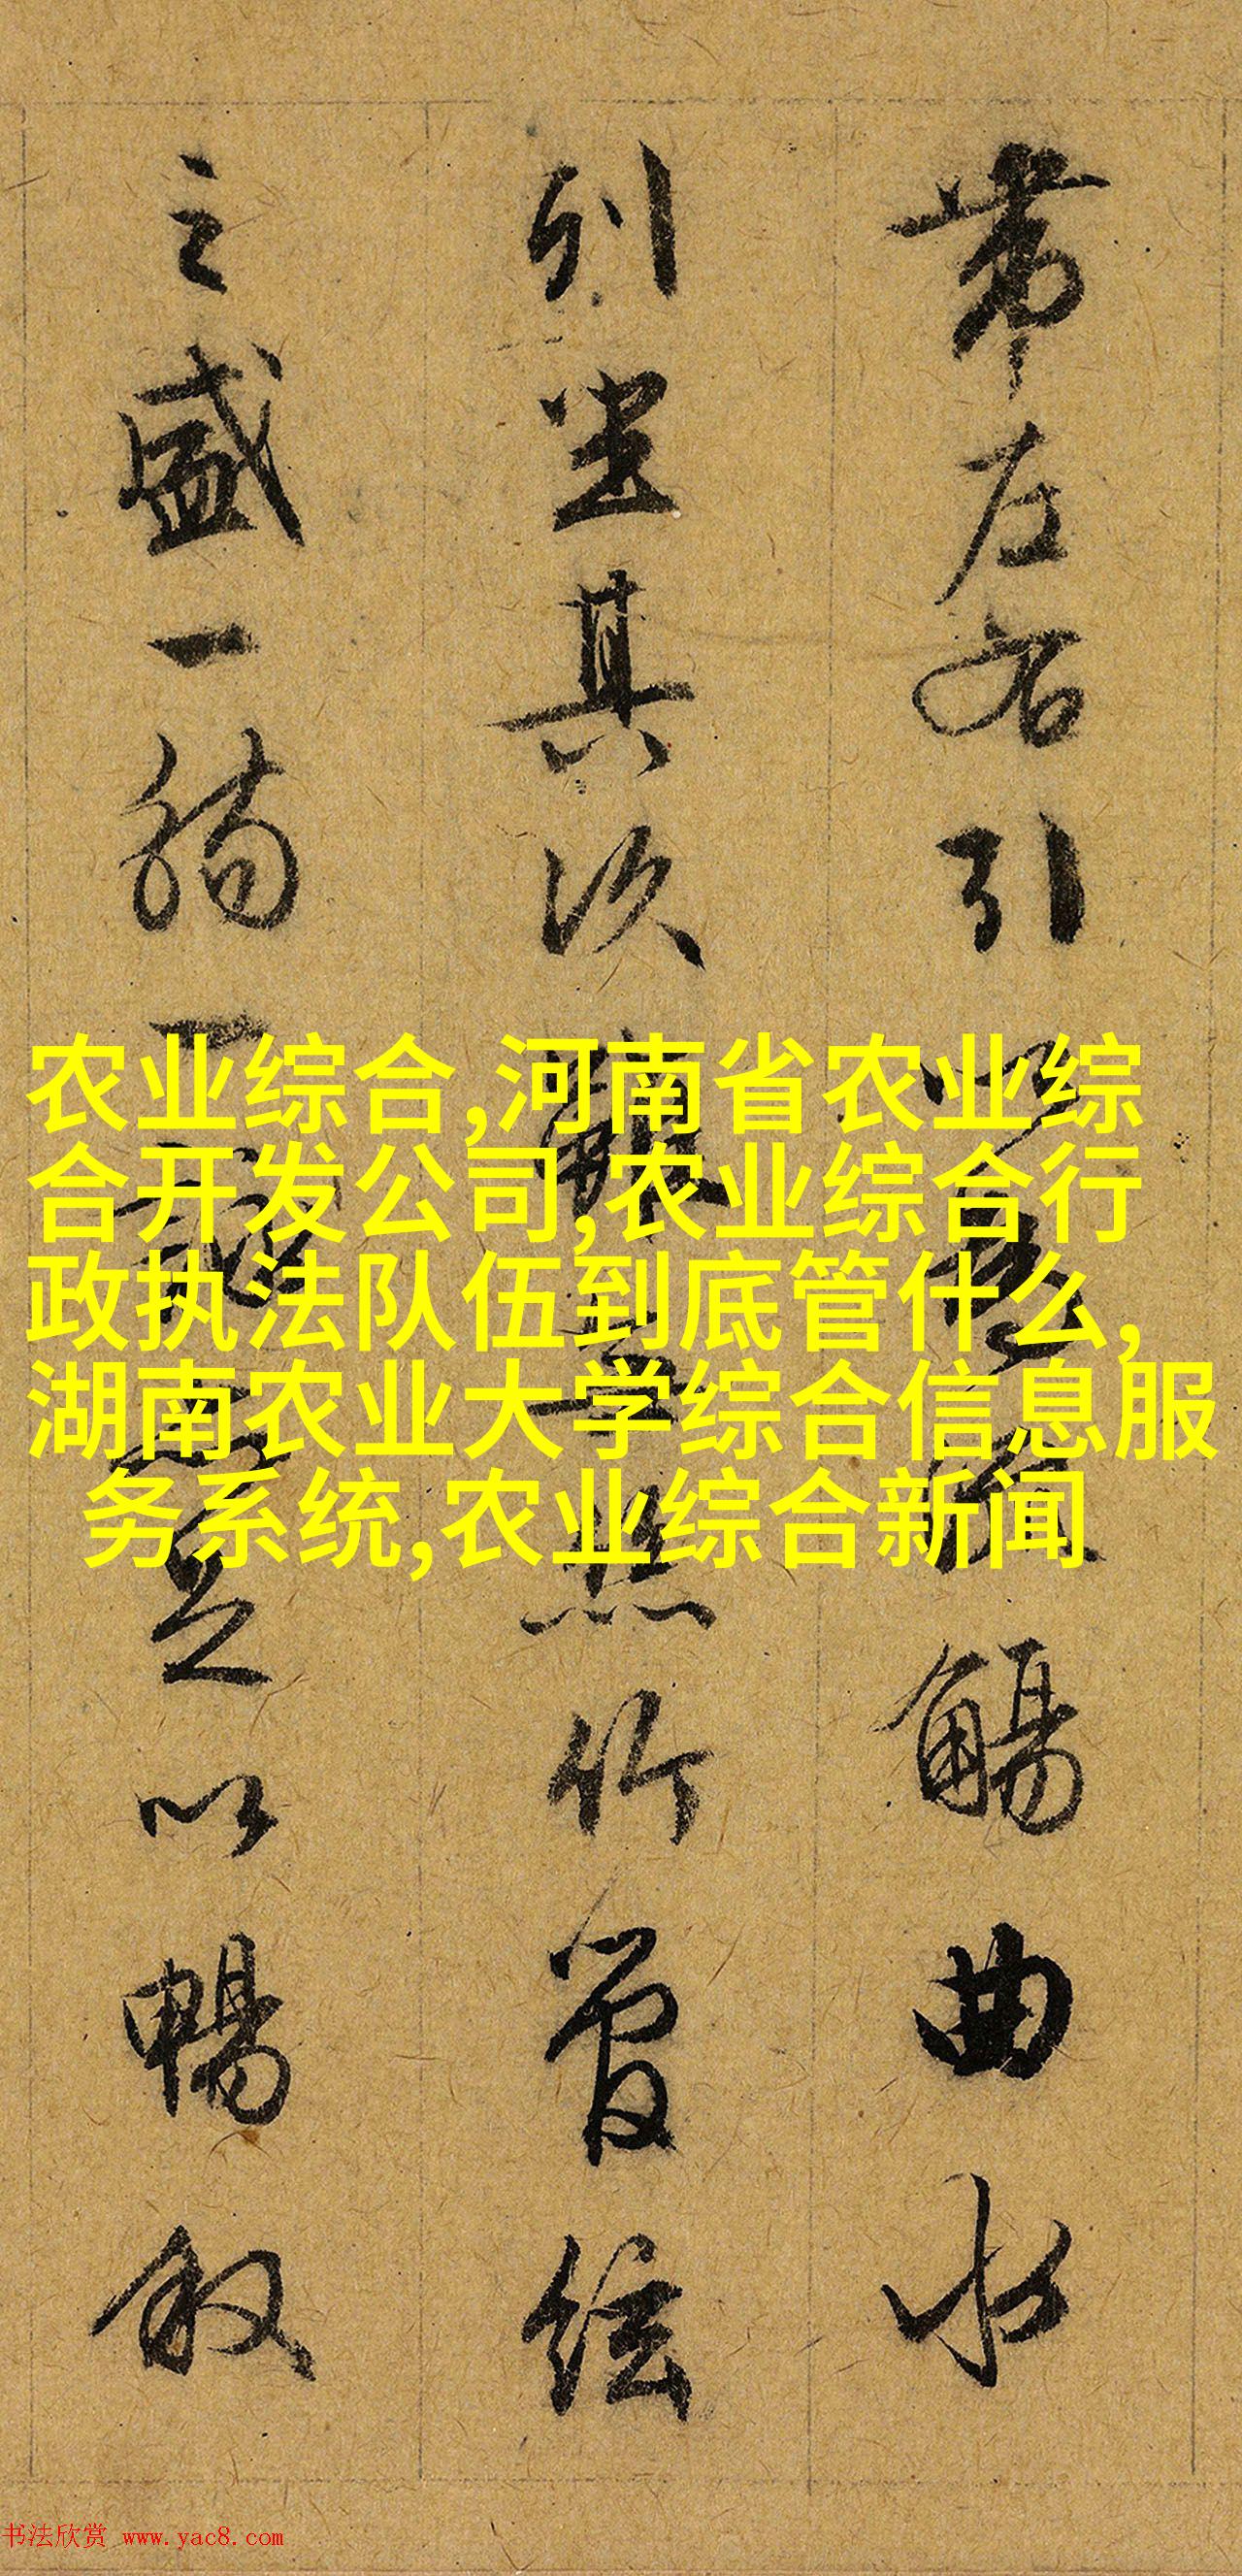 帶左右引以為流觴曲水
列坐其次雖無竹管絃
之盛一觴一詠亦足以暢叙
农业综合,河南省农业综
合开发公司,农业综合行
政执法队伍到底管什么,
湖南农业大学综合信息服
务系统,农业综合新闻
书法欣赏 www.yac8.com